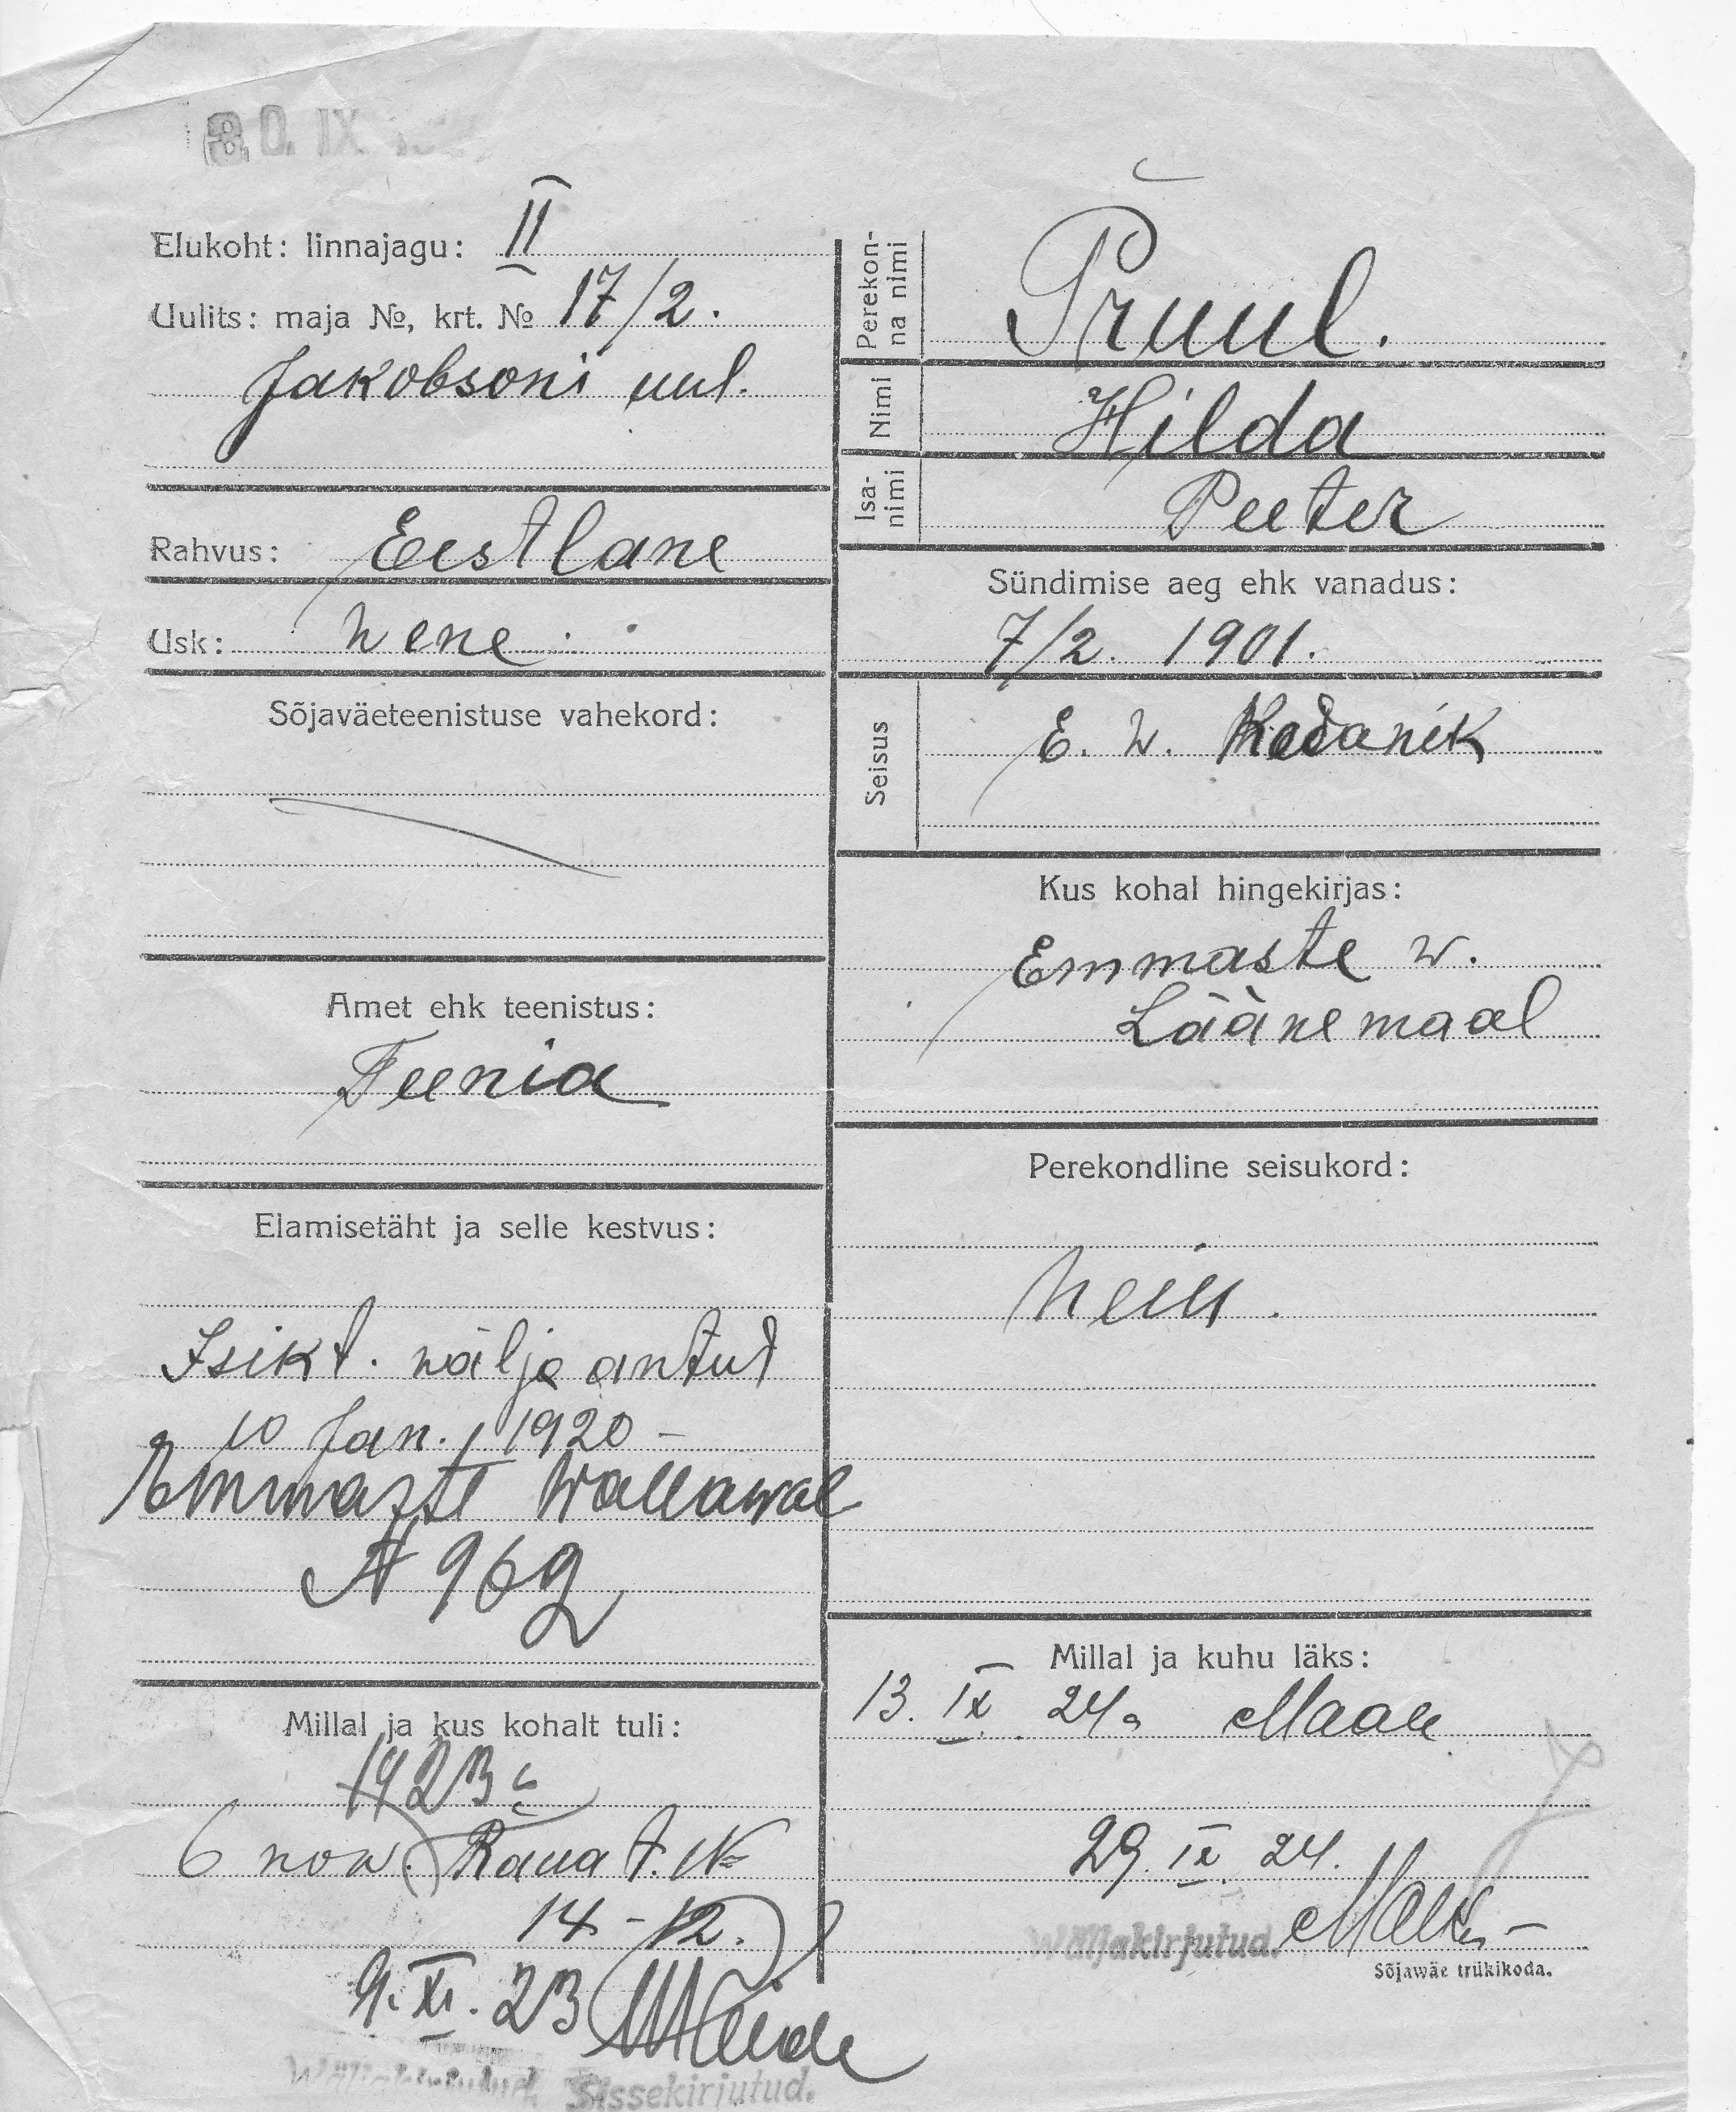 30. IX
Elukoht: linnajagu: II
Uulits: maja №, krt. № 17/2.
Jakobsoni uul.
Rahvus: Eestlane
Usk: wene
Sõjaväeteenistuse vahekord:
Amet ehk teenistus:
Teenia
Elamisetäht ja selle kestvus:
Isikt. wälja antut
10 Jan. 1920 -
Emmaste Wallawal
N 969
Millal ja kus kohalt tuli:
1923
6 now. Raua t. №
14 - 12.
9. XI. 23
Wäljakirjutud. Sissekirjutud.
Perekonna nimi
Pruul.
Nimi
Hilda
Isanimi
Peeter
Sündimise aeg ehk vanadus:
7/2. 1901.
Seisus
E. w. Kodanik
Kus kohal hingekirjas:
Emmaste w.
Läänemaal
Perekondline seisukord:
neiu.
Millal ja kuhu läks:
13. IX. 24. Maale
29. IX. 24.
Wäljakirjutud.
Sõjawäe trükikoda.